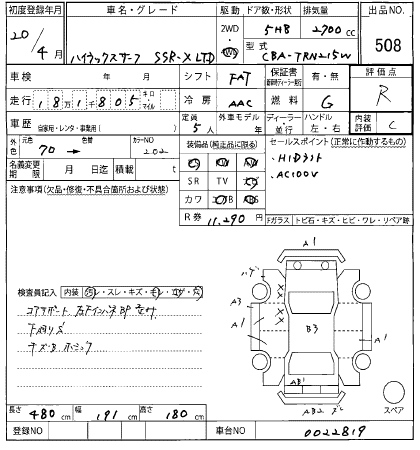 初度登録年月 車名・グレード 駆動 ドア数・形状 排気量 出品NO.
20/4月 ハイラックスサーフ SSR-X LTD 2WD 4WD 5HB 2700cc 508
型式 CBA-TRN215W
車検 年 月 シフト FAT 保証書 有・無 評価点
走行 181805 キロ マイル 冷房 AAC 燃料 G R
車歴 自家用・レンタ・事業用( ) 定員 5人 外車モデル 年 ディーラー・並行 ハンドル 左・右 内装評価 C
外色 元色 70 → 色替 カラーNO 202 装備品(純正品に限る) セールスポイント(正常に作動するもの)
・HIDライト
・AC100V
名義変更期限 月 日迄 積載 t SR TV
注意事項(欠品・修復・不具合箇所および状態) カワ AB ABS
R券 11,290 Fガラス トビ石・キズ・ヒビ・ワレ・リペア跡
検査員記入 内装 汚レ・スレ・キズ・モレ・コゲ・穴
コアサポート 左
下廻りS
キズ
A1
A3
A1
B3
A1
AB1
AB2
スペア
長さ 480cm 幅 191cm 高さ 180cm
登録NO 車台NO 0022819